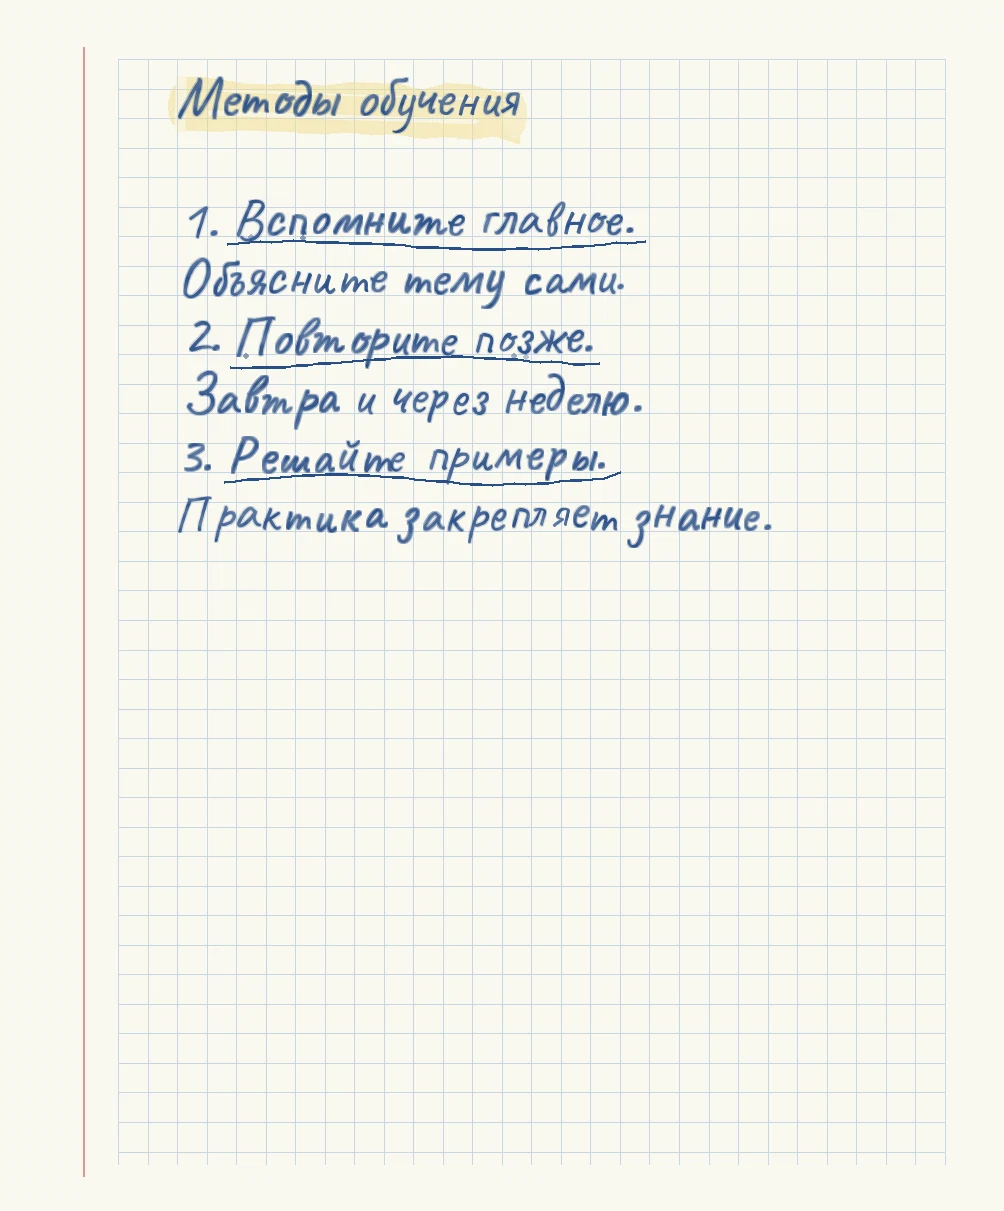 Методы обучения
1. Вспомните главное.
Объясните тему сами.
2. Повторите позже.
Завтра и через неделю.
3. Решайте примеры.
Практика закрепляет знание.